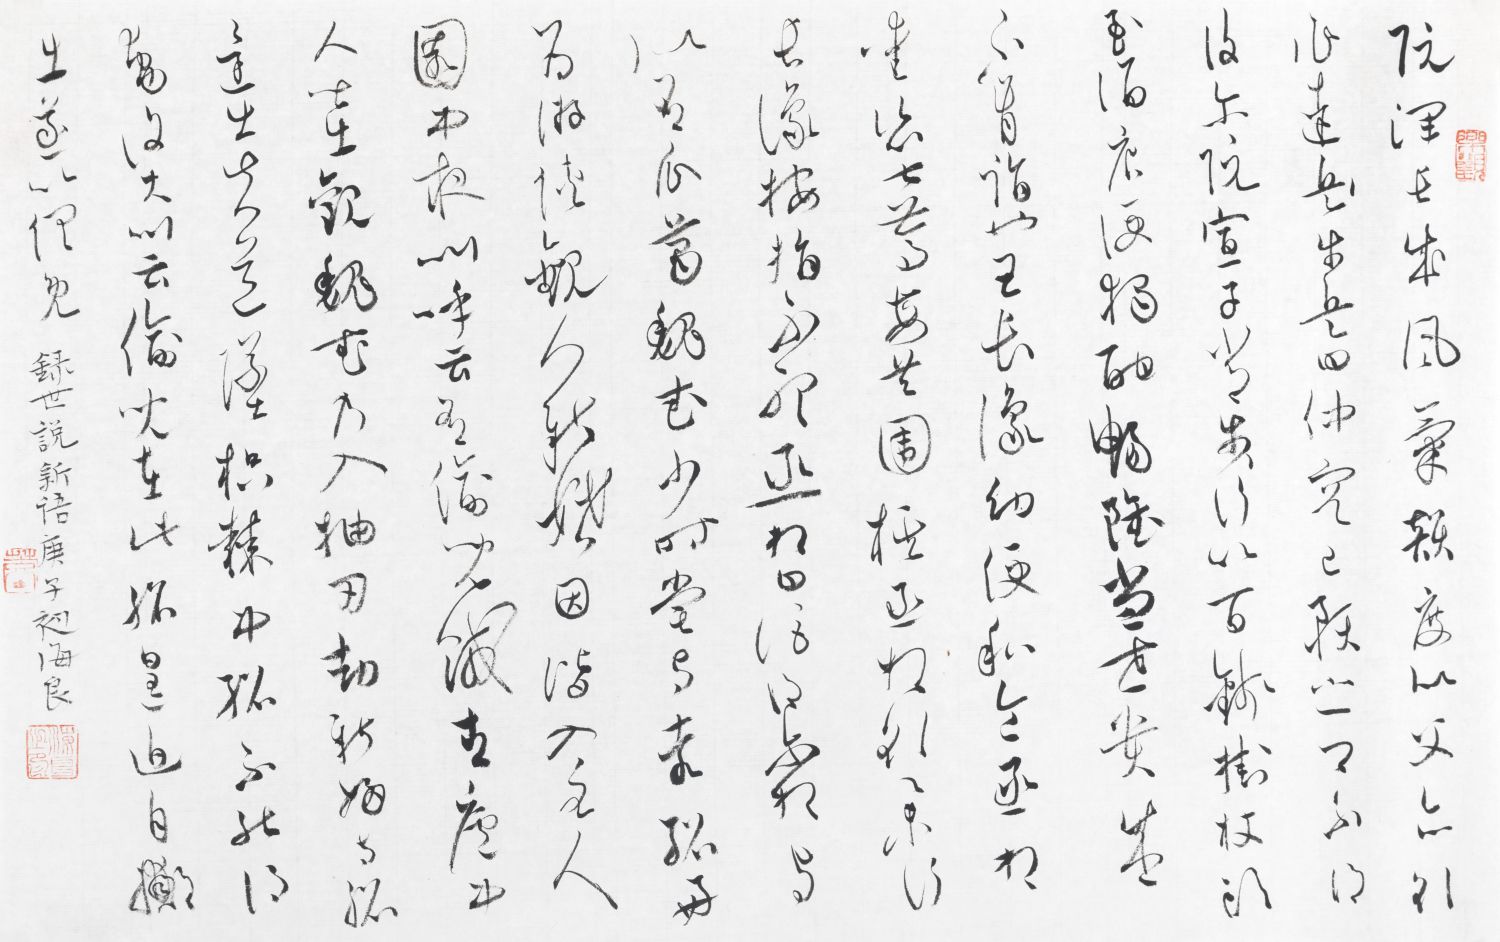 阮渾長成風氣韻度似父亦欲
作達兵步兵曰仲容已預之卿不得
復爾阮宣子常步行以百錢掛杖頭
至酒店便獨酣暢雖當世貴盛
不肯詣也王長豫幼便和令丞相
愛恣甚篤每共圍棋丞相欲舉行
長豫按指不聽丞相曰詎得爾相與
似有瓜葛魏武少時嘗與袁紹好
為游俠觀人新婚因潛入主人
園中夜叫呼云有偷兒賊青廬中
人皆出觀魏武乃入抽刃劫新婦與紹
還出失道墜枳棘中紹不能得
動復大叫云偷兒在此紹遑迫自擲
出遂以俱免 錄世說新語庚子初海良